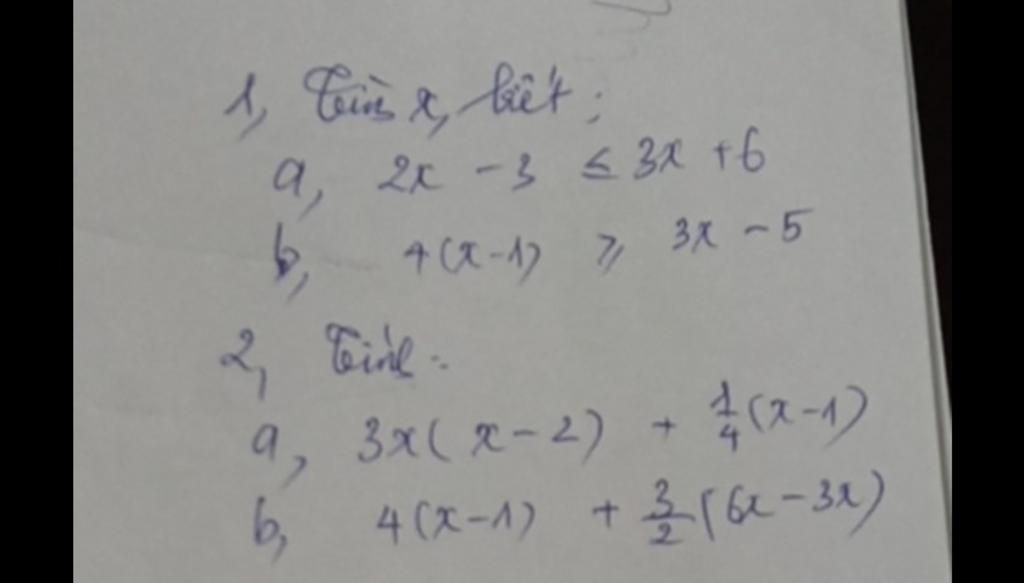 1, Tìm x, biết:
a, 2x - 3 ≤ 3x + 6
b, 4(x-1) ≥ 3x - 5
2, Tính:
a, 3x(x-2) + 1/4(x-1)
b, 4(x-1) + 3/2(6x-3x)